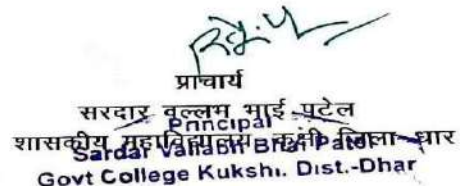 प्राचार्य
सरदार वल्लभ भाई पटेल
Principal
शासकीय महाविद्यालय कुक्षी जिला-धार
Sardar Vallabh Bhai Patel
Govt College Kukshi. Dist.-Dhar